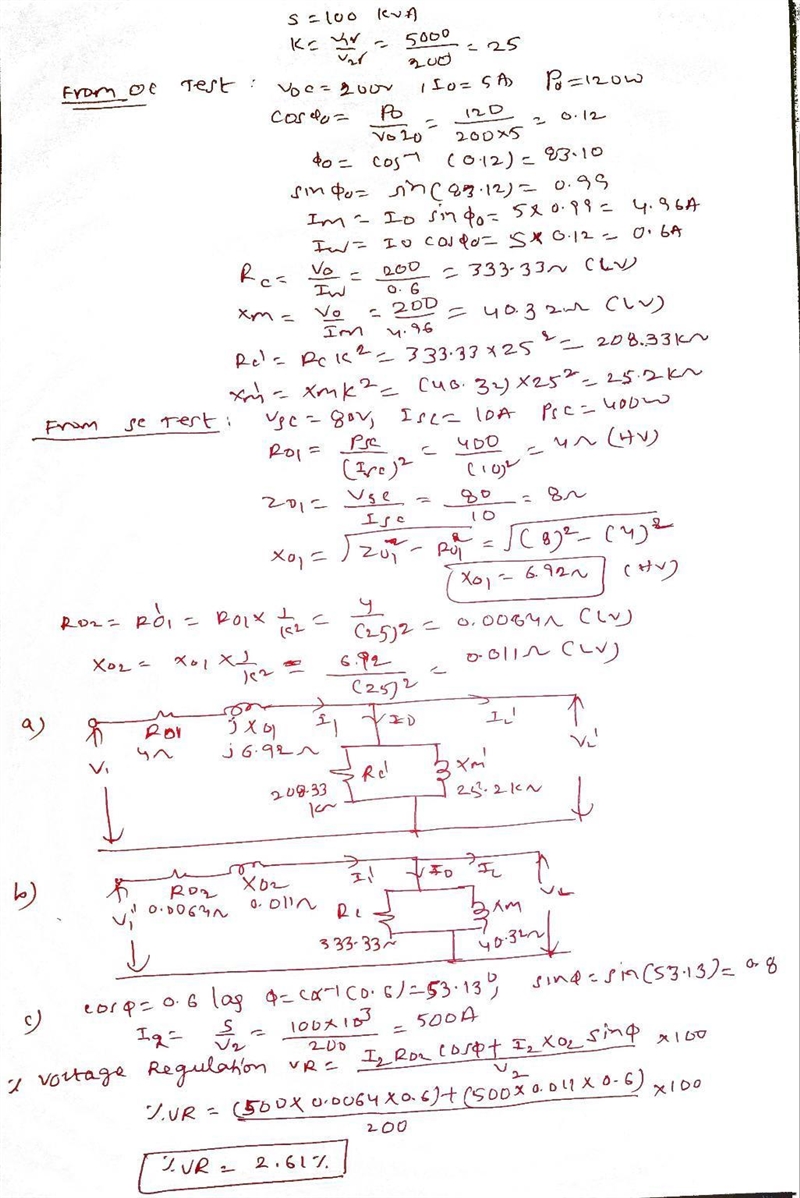 S = 100 KVA
K = V1r/V2r = 5000/200 = 25
From OC Test : VOC = 200V, IO = 5A, PO = 120W
cosΦo = Po/VoIo = 120/200×5 = 0.12
Φo = cos⁻¹ (0.12) = 83.10
sinΦo = sin(83.12) = 0.99
Im = Io sinΦo = 5×0.99 = 4.96A
Iw = Io cosΦo = 5×0.12 = 0.6A
Rc = Vo/Iw = 200/0.6 = 333.33Ω (LV)
Xm = Vo/Im = 200/4.96 = 40.32Ω (LV)
Rc' = Rc K² = 333.33×25² = 208.33KΩ
Xm' = XmK² = (40.32)×25² = 25.2KΩ
From SC Test : VSC = 80V, ISC = 10A PSC = 400W
R01 = Psc/(Isc)² = 400/(10)² = 4Ω (HV)
Z01 = Vsc/Isc = 80/10 = 8Ω
X01 = √Z01² - R01² = √(8)² - (4)²
X01 = 6.92Ω (HV)
R02 = R01' = R01 × 1/K² = 4/(25)² = 0.0064Ω (LV)
X02 = X01 × 1/K² = 6.92/(25)² = 0.011Ω (LV)
a) R01 jX01 I1 IO IL'
4Ω j6.92Ω
V1 Rc' Xm' VL'
208.33 KΩ 25.2KΩ
b) R02 X02 I1' IO IL
V1' 0.0064Ω 0.011Ω RC Xm VL
333.33Ω 40.32Ω
c) cosφ = 0.6 lag φ = cos⁻¹(0.6) = 53.13°, sinφ = sin(53.13) = 0.8
I2 = S/V2 = 100×10³/200 = 500A
% Voltage Regulation VR = I2 R02 cosφ + I2 X02 sinφ/V2 ×100
%VR = (500×0.0064×0.6)+(500×0.011×0.6)/200 ×100
%VR = 2.61%